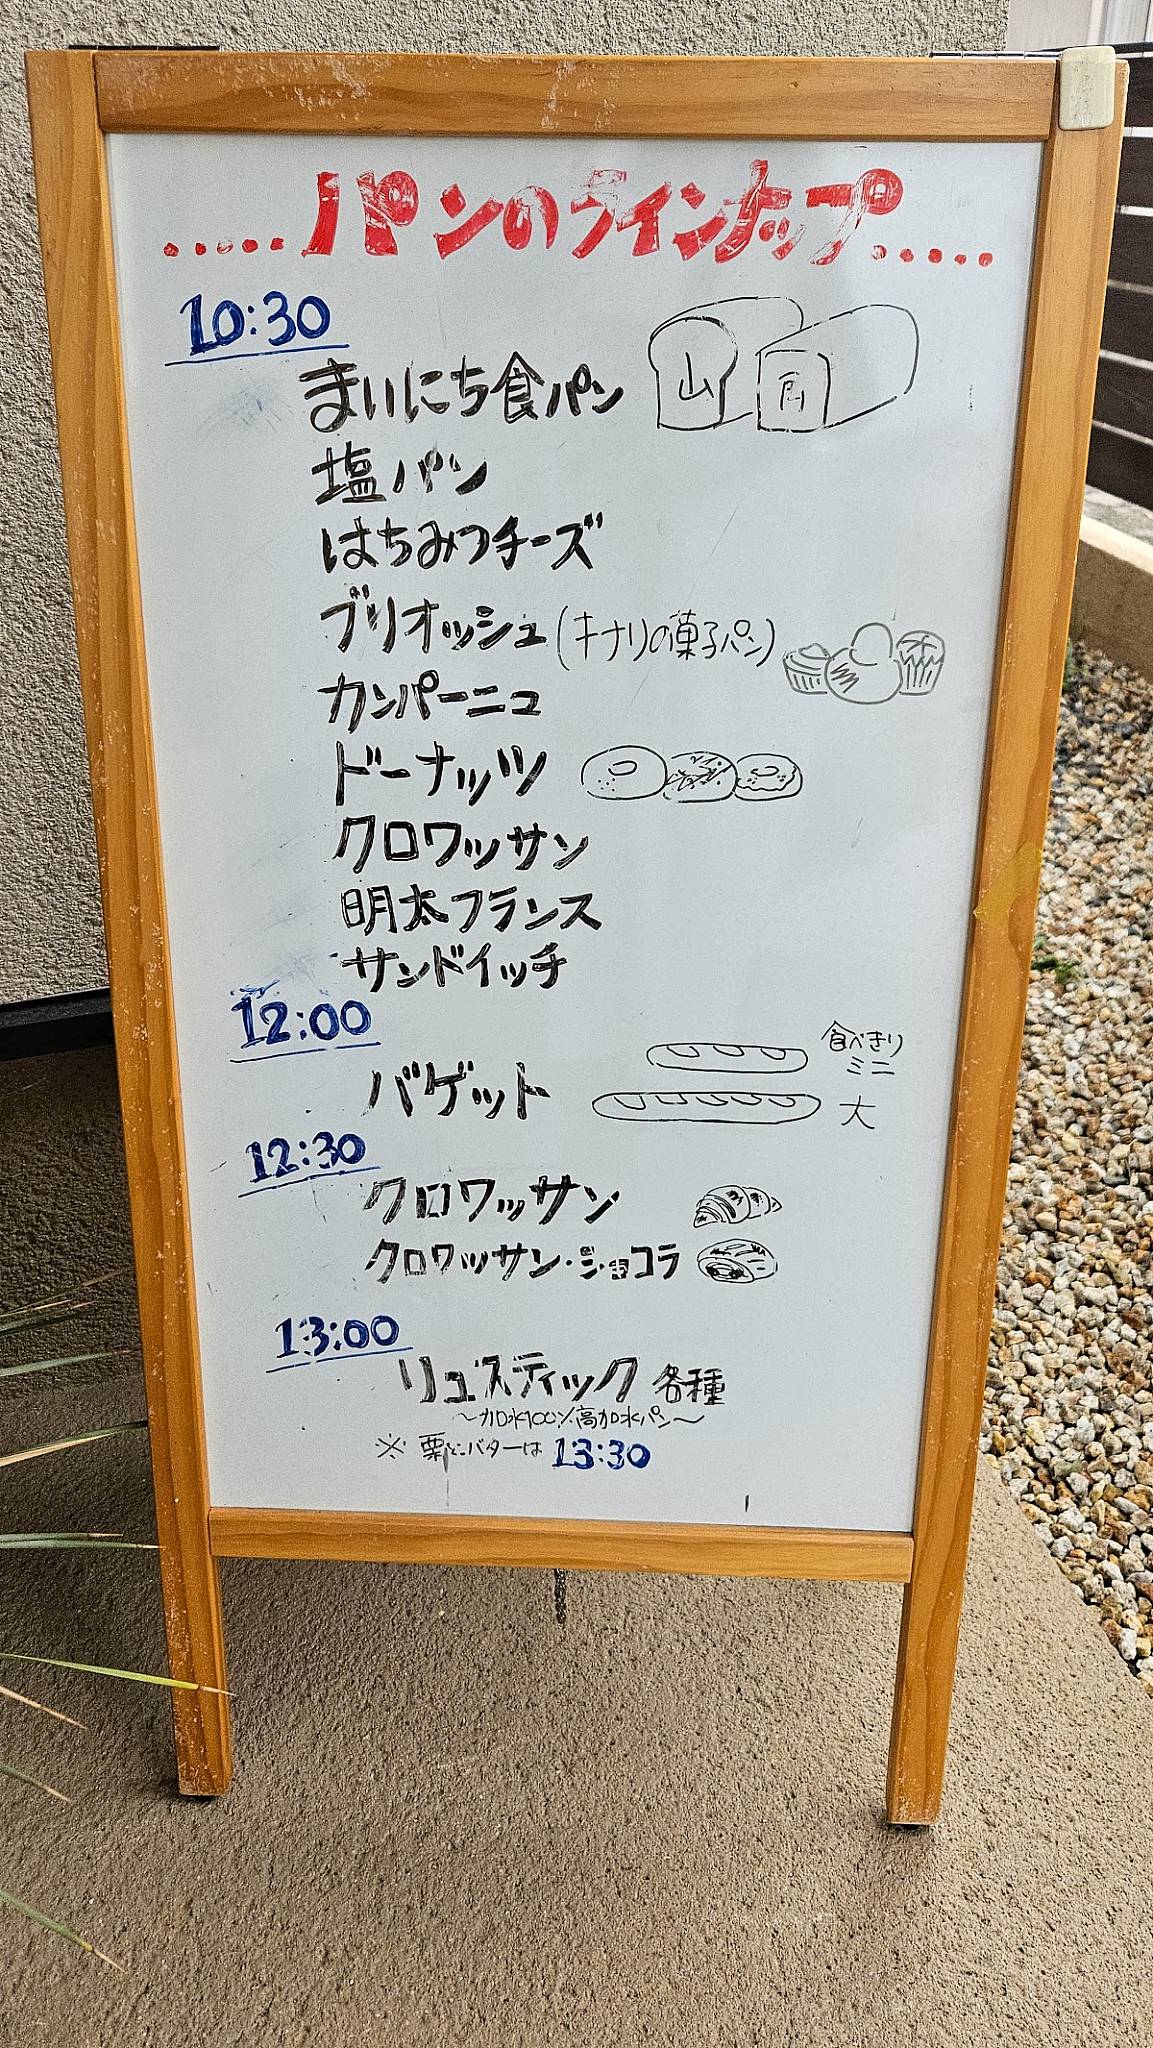 .....パンのラインナップ.....
10:30
まいにち食パン 山 角
塩パン
はちみつチーズ
ブリオッシュ(キナリの菓子パン)
カンパーニュ
ドーナッツ
クロワッサン
明太フランス
サンドイッチ
12:00
食べきり
ミニ
バゲット 大
12:30
クロワッサン
クロワッサン・ショコラ
13:00
リュスティック 各種
～加水100%高加水パン～
※ 栗とバターは 13:30